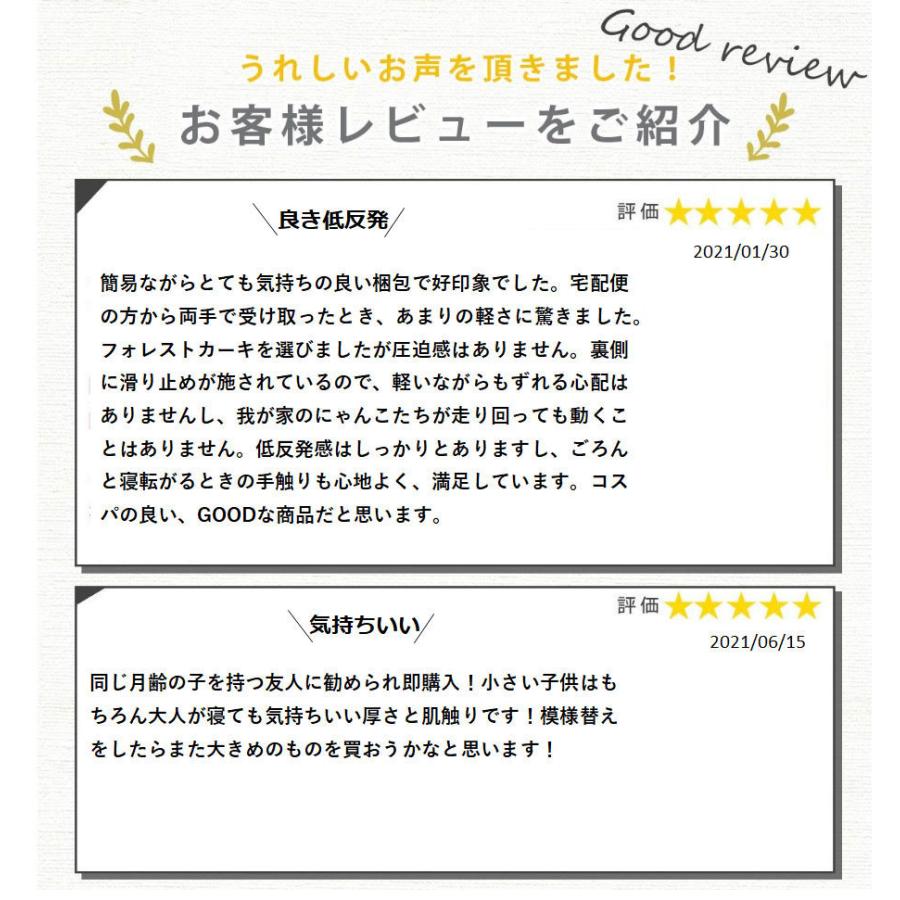 Good review
うれしいお声を頂きました！
お客様レビューをご紹介
良き低反発
評価★★★★★
2021/01/30
簡易ながらとても気持ちの良い梱包で好印象でした。宅配便
の方から両手で受け取ったとき、あまりの軽さに驚きました。
フォレストカーキを選びましたが圧迫感はありません。裏側
に滑り止めが施されているので、軽いながらもずれる心配は
ありませんし、我が家のにゃんこたちが走り回っても動くこ
とはありません。低反発感はしっかりとありますし、ごろん
と寝転がるときの手触りも心地よく、満足しています。コス
パの良い、GOODな商品だと思います。
気持ちいい
評価★★★★★
2021/06/15
同じ月齢の子を持つ友人に勧められ即購入！小さい子供はも
ちろん大人が寝ても気持ちいい厚さと肌触りです！模様替え
をしたらまた大きめのものを買おうかなと思います！